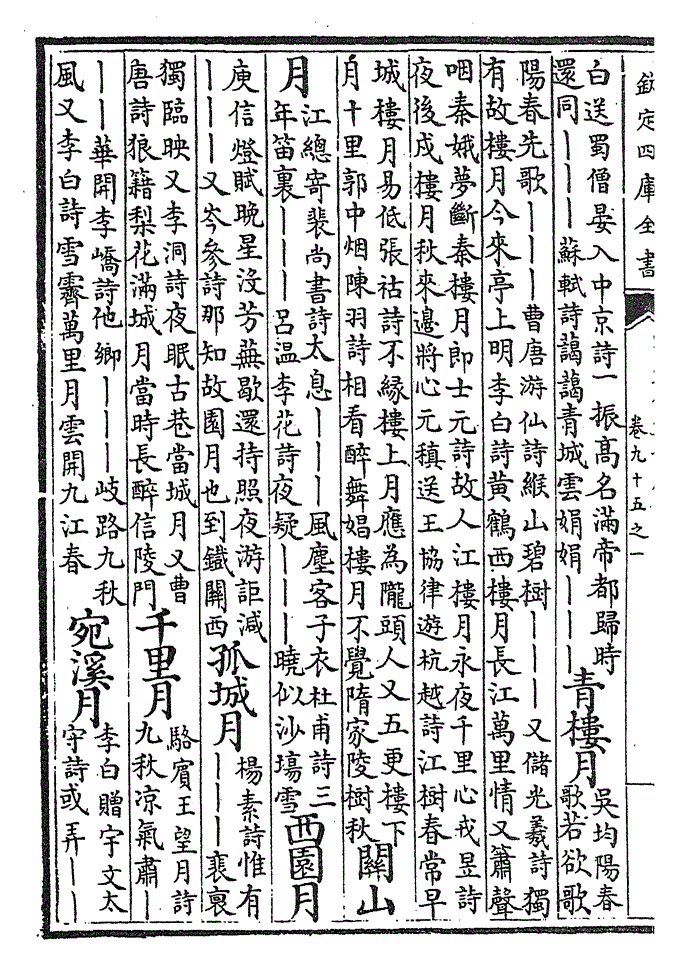 欽定四庫全書
卷九十五之一
白送蜀僧晏入中京詩一振高名滿帝都歸時
還同｜｜｜蘇軾詩藹藹青城雲娟娟｜｜｜
青樓月
吳均陽春
歌若欲歌
陽春先歌｜｜｜曹唐游仙詩緱山碧樹｜｜｜又儲光羲詩獨
有故樓月今來亭上明李白詩黃鶴西樓月長江萬里情又簫聲
咽秦娥夢斷秦樓月郎士元詩故人江樓月永夜千里心戎昱詩
夜後戍樓月秋來邊將心元稹送王協律遊杭越詩江樹春常早
城樓月易低張祜詩不緣樓上月應為隴頭人又五更樓下
月十里郭中烟陳羽詩相看醉舞娼樓月不覺隋家陵樹秋
關山
月
江總寄裴尚書詩太息｜｜｜風塵客子衣杜甫詩三
年笛裏｜｜｜呂溫李花詩夜疑｜｜｜曉似沙塲雪
西園月
庾信燈賦晚星没芳蕪歇還持照夜游詎減
｜｜｜又岑參詩那知故園月也到鐵關西
孤城月
楊素詩惟有
｜｜｜裵褢
獨臨映又李洞詩夜眠古巷當城月又曹
唐詩狼籍梨花滿城月當時長醉信陵門
千里月
駱賓王望月詩
九秋凉氣肅｜
｜｜華開李嶠詩他鄉｜｜｜岐路九秋
風又李白詩雪霽萬里月雲開九江春
宛溪月
李白贈宇文太
守詩或弄｜｜